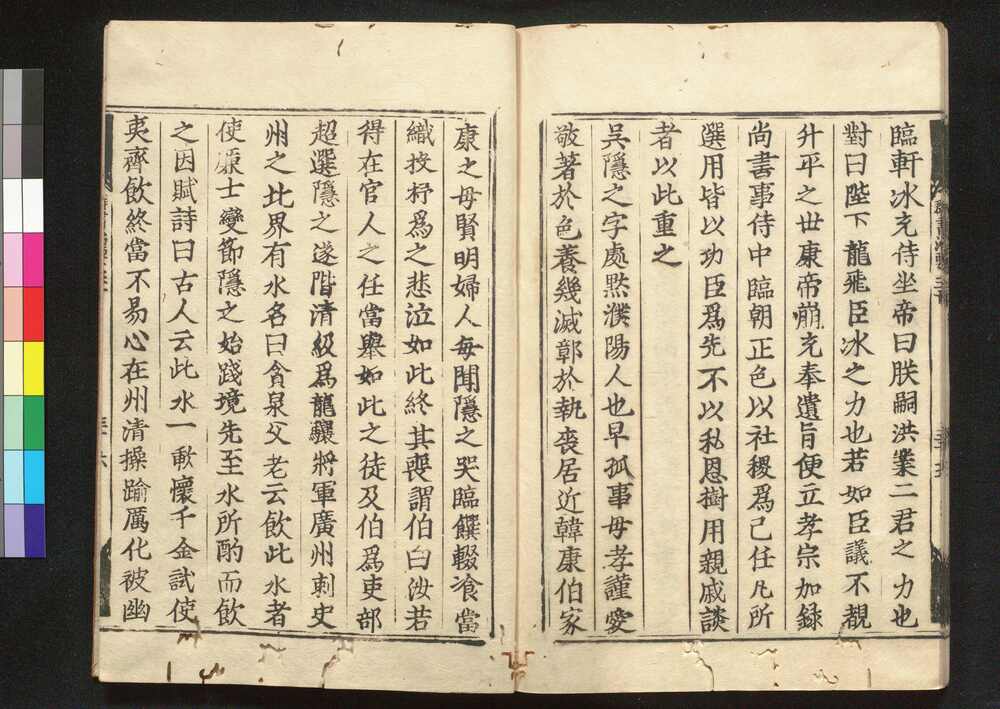 臨軒冰充侍坐帝曰朕嗣洪業二君之力也
對曰陛下龍飛臣冰之力也若如臣議不覩
升平之世康帝崩充奉遺旨便立孝宗加錄
尚書事侍中臨朝正色以社稷爲己任凡所
選用皆以功臣爲先不以私恩樹用親戚談
者以此重之
吳隱之字處黙濮陽人也早孤事母孝謹愛
敬著於色養幾滅鄣於執喪居近韓康伯家
康之母賢明婦人每聞隱之哭臨饌輟飡當
織投杼爲之悲泣如此終其喪謂伯曰汝若
得在官人之任當舉如此之徒及伯爲吏部
超選隱之遂階清級爲龍驤將軍廣州刺史
州之北界有水名曰貪泉父老云飲此水者
使廉士變節隱之始踐境先至水所酌而飲
之因賦詩曰古人云此水一歃懷千金試使
夷齊飲終當不易心在州清操踰厲化被幽